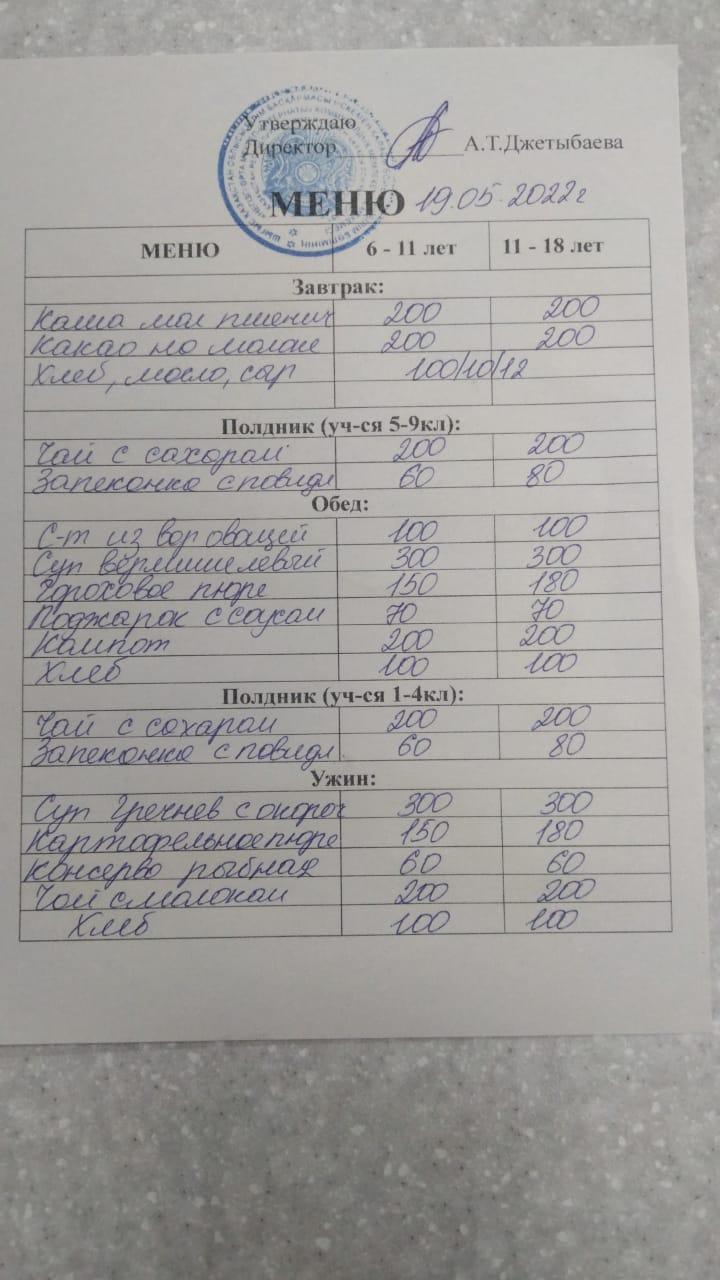 Утверждаю
Директор____________А.Т.Джетыбаева
МЕНЮ 19.05.2022г
МЕНЮ 6 - 11 лет 11 - 18 лет
Завтрак:
Каша мол пшенич 200 200
Какао на молоке 200 200
Хлеб, масло, сыр 100/10/12
Полдник (уч-ся 5-9кл):
Чай с сахаром 200 200
Запеканка с повидл 60 80
Обед:
С-т из вар овощей 100 100
Суп вермишелевый 300 300
Гороховое пюре 150 180
Поджарок с соусом 70 70
Компот 200 200
Хлеб 100 100
Полдник (уч-ся 1-4кл):
Чай с сахаром 200 200
Запеканка с повидл. 60 80
Ужин:
Суп Гречнев с окороч 300 300
Картофельное пюре 150 180
Консерва рыбная 60 60
Чай с молоком 200 200
Хлеб 100 100